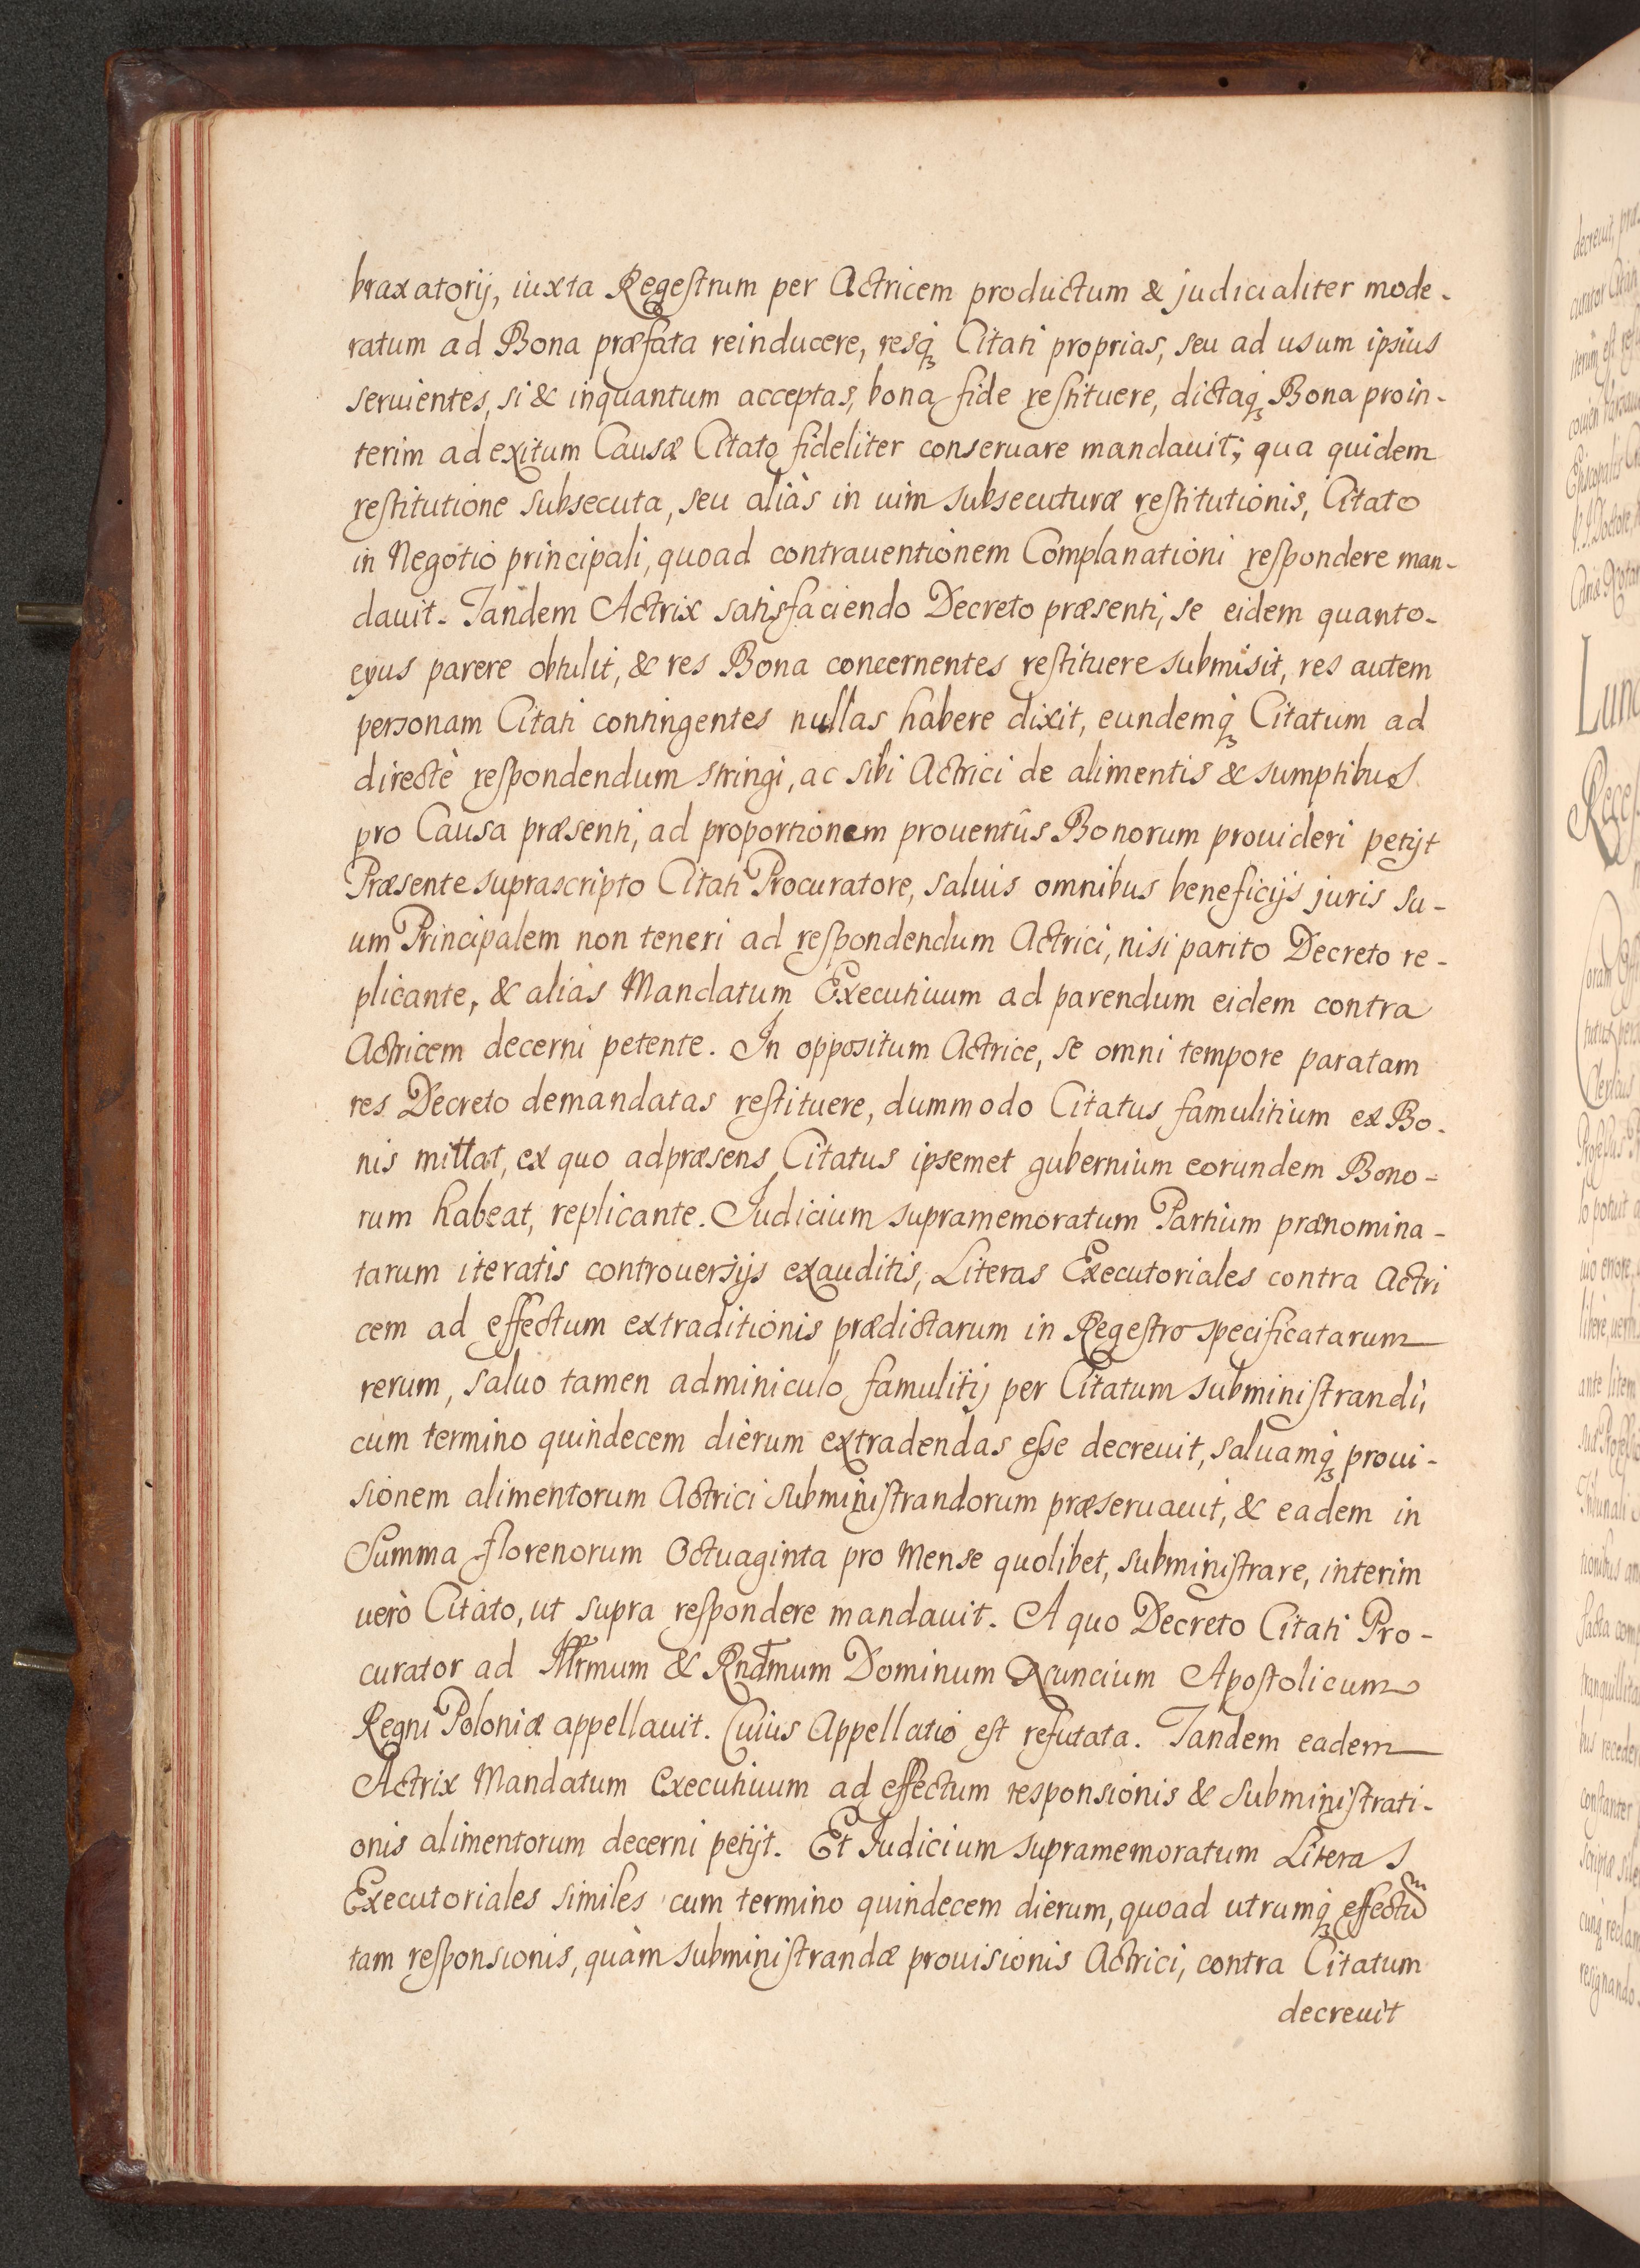 braxatorij, iuxta Regestrum per Actricem productum & judicialiter mode-
ratum ad Bona præfata reinducere, resq́ꝫ Citati proprias, seu ad usum ipsius
seruientes, si & inquantum acceptas, bona fide restituere, dictaq́ꝫ Bona proin-
terim ad exitum Causæ Citato fideliter conseruare mandauit; qua quidem
restitutione subsecuta, seu aliàs in uim subsecuturæ restitutionis, Citato
in Negotio principali, quoad contrauentionem Complanationi respondere man-
dauit. Tandem Actrix satisfaciendo Decreto præsenti, se eidem quanto-
cyus parere obtulit, & res Bona concernentes restituere submisit, res autem
personam Citati contingentes nullas habere dixit, eundemq́ꝫ Citatum ad
directè respondendum stringi, ac sibi Actrici de alimentis & sumptibus
pro Causa præsenti, ad proportionem prouentûs Bonorum prouideri petijt
Præsente suprascripto Citati Procuratore, saluis omnibus beneficijs juris su-
um Principalem non teneri ad respondendum Actrici, nisi parito Decreto re-
plicante, & aliàs Mandatum Executiuum ad parendum eidem contra
Actricem decerni petente. In oppositum Actrice, se omni tempore paratam
res Decreto demandatas restituere, dummodo Citatus famulitium ex Bo-
nis mittat, ex quo adpræsens Citatus ipsemet gubernium eorundem Bono-
rum habeat, replicante. Judicium supramemoratum Partium prænomina-
tarum iteratis controuersijs exauditis, Literas Executoriales contra Actri
cem ad effectum extraditionis prædictarum in Regestro specificatarum
rerum, saluo tamen adminiculo famulitij per Citatum subministrandi,
cum termino quindecem dierum extradendas esse decreuit, saluamq́ꝫ proui-
sionem alimentorum Actrici subministrandorum præseruauit, & eadem in
Summa florenorum Octuaginta pro Mense quolibet, subministrare, interim
uerò Citato, ut supra respondere mandauit. A quo Decreto Citati Pro-
curator ad Illrmum & Rndmum Dominum Nuncium Apostolicum
Regni Poloniæ appellauit. Cuius Appellatio est refutata. Tandem eadem
Actrix Mandatum Executiuum ad effectum responsionis & subministrati-
onis alimentorum decerni petijt. Et Judicium supramemoratum Literas
Executoriales similes cum termino quindecem dierum, quoad utrumq́ꝫ effectũ
tam responsionis, quàm subministrandæ prouisionis Actrici, contra Citatum
decreuit